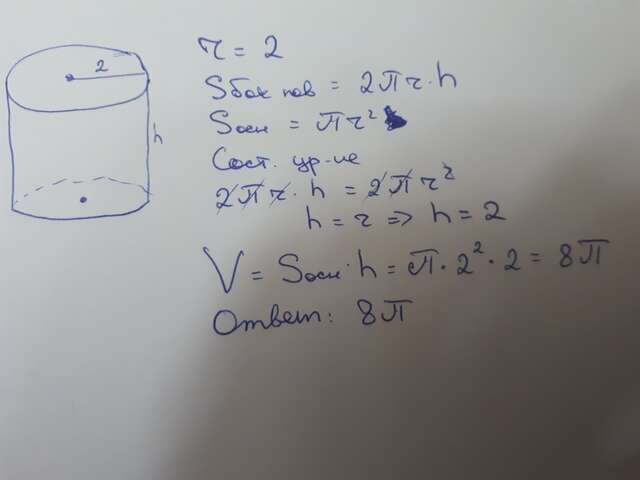 2
h
r = 2
Sбок пов = 2πr·h
Sосн = πr²
Сост. ур-ие
2πr · h = 2πr²
h = r => h = 2
V = Sосн·h = π·2²·2 = 8π
Ответ: 8π